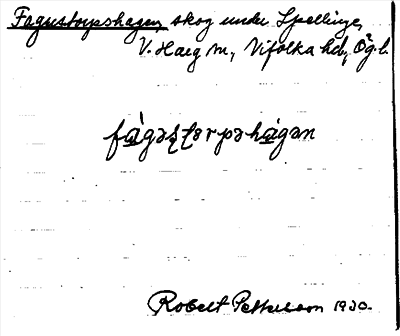 Fågustorpshagen, skog under Spellinge,
V. Harg sn, Vifolka hd, Ög. l.
fa̲̒gəʂʈərpəha̲̒gən
Robert Pettersson 1930.